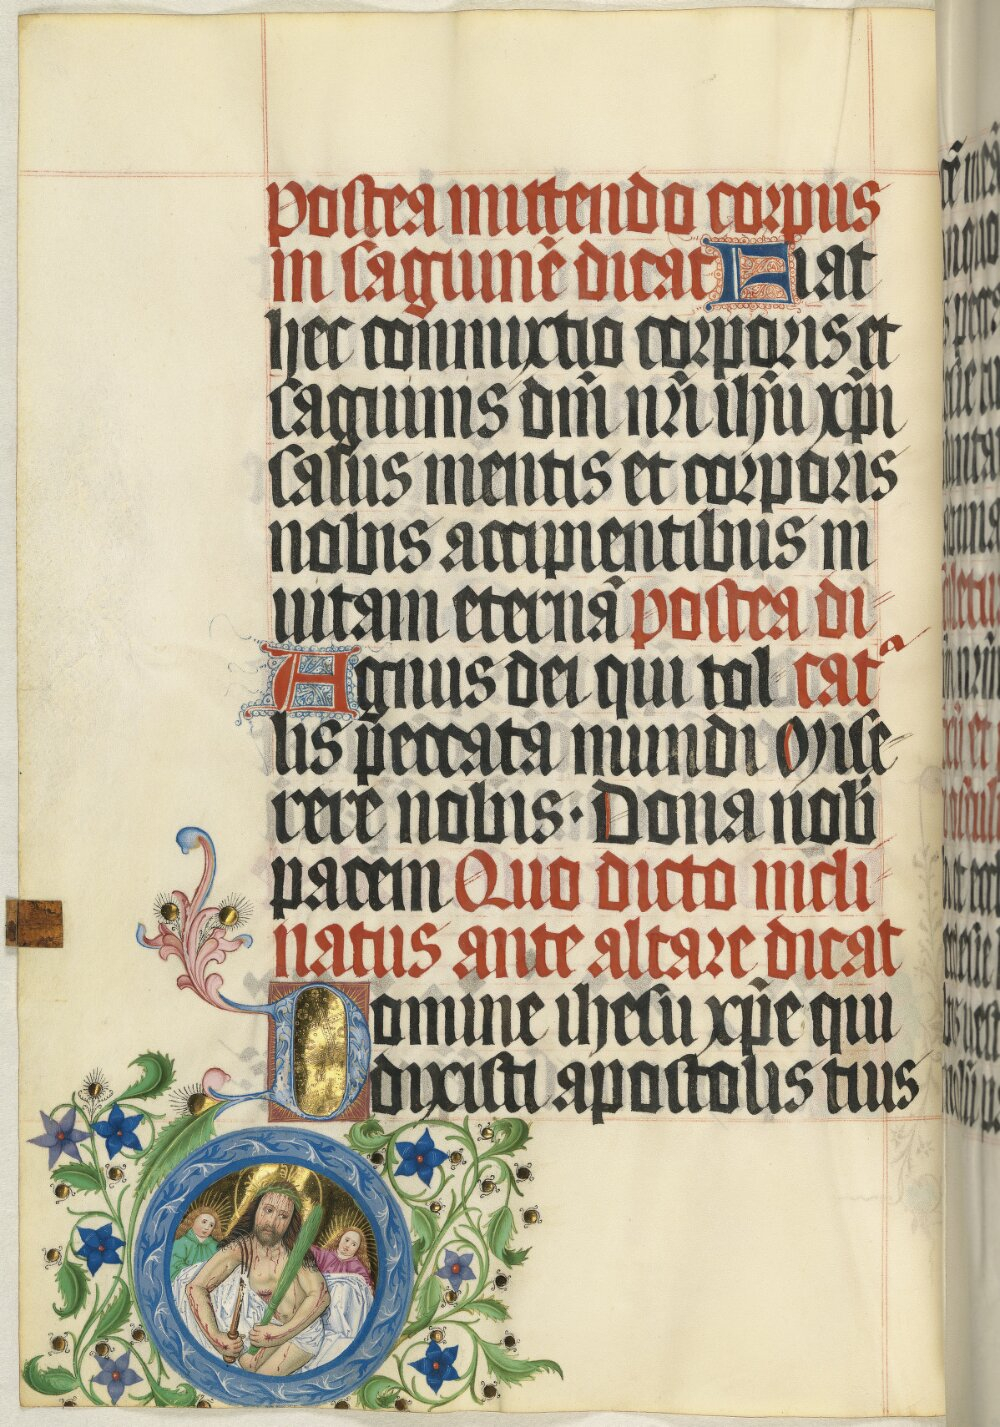 Postea mittendo corpus
in sāguinē dicat Fiat
hec commixtio corporis et
sāguinis dn̄i nr̄i ihū xp̄i
salus mentis et corporis
nobis accipientibus in
uitam eternā postea di
Agnus dei qui tol cat^r
lis peccata mundi Mise
rere nobis· Dona nob̄
pacem Quo dicto incli
natus ante altare dicat
Domine ihesu xp̄e qui
dixisti apostolis tuis